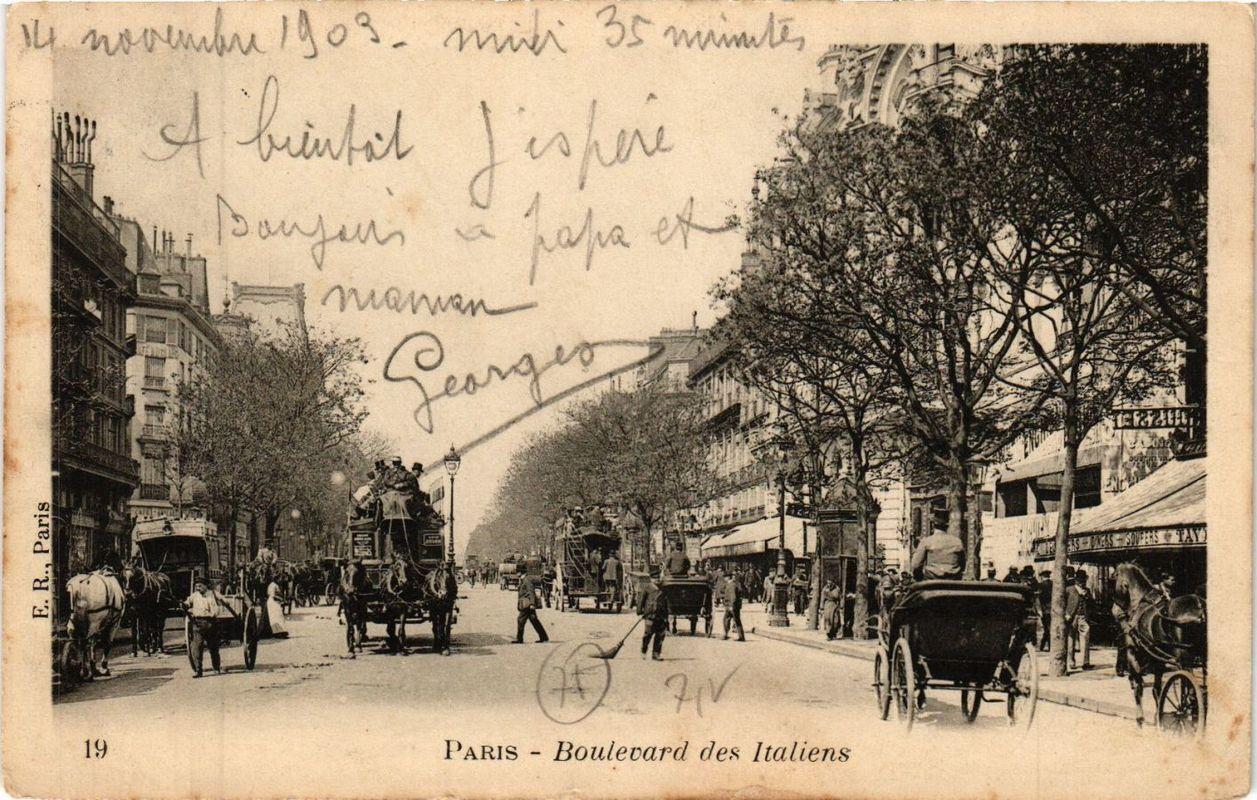 14 novembre 1903 - midi 35 minutes
A bientôt j'espère
Bonjour à papa et
maman
Georges
TAV
E. R., Paris
75
19
PARIS - Boulevard des Italiens